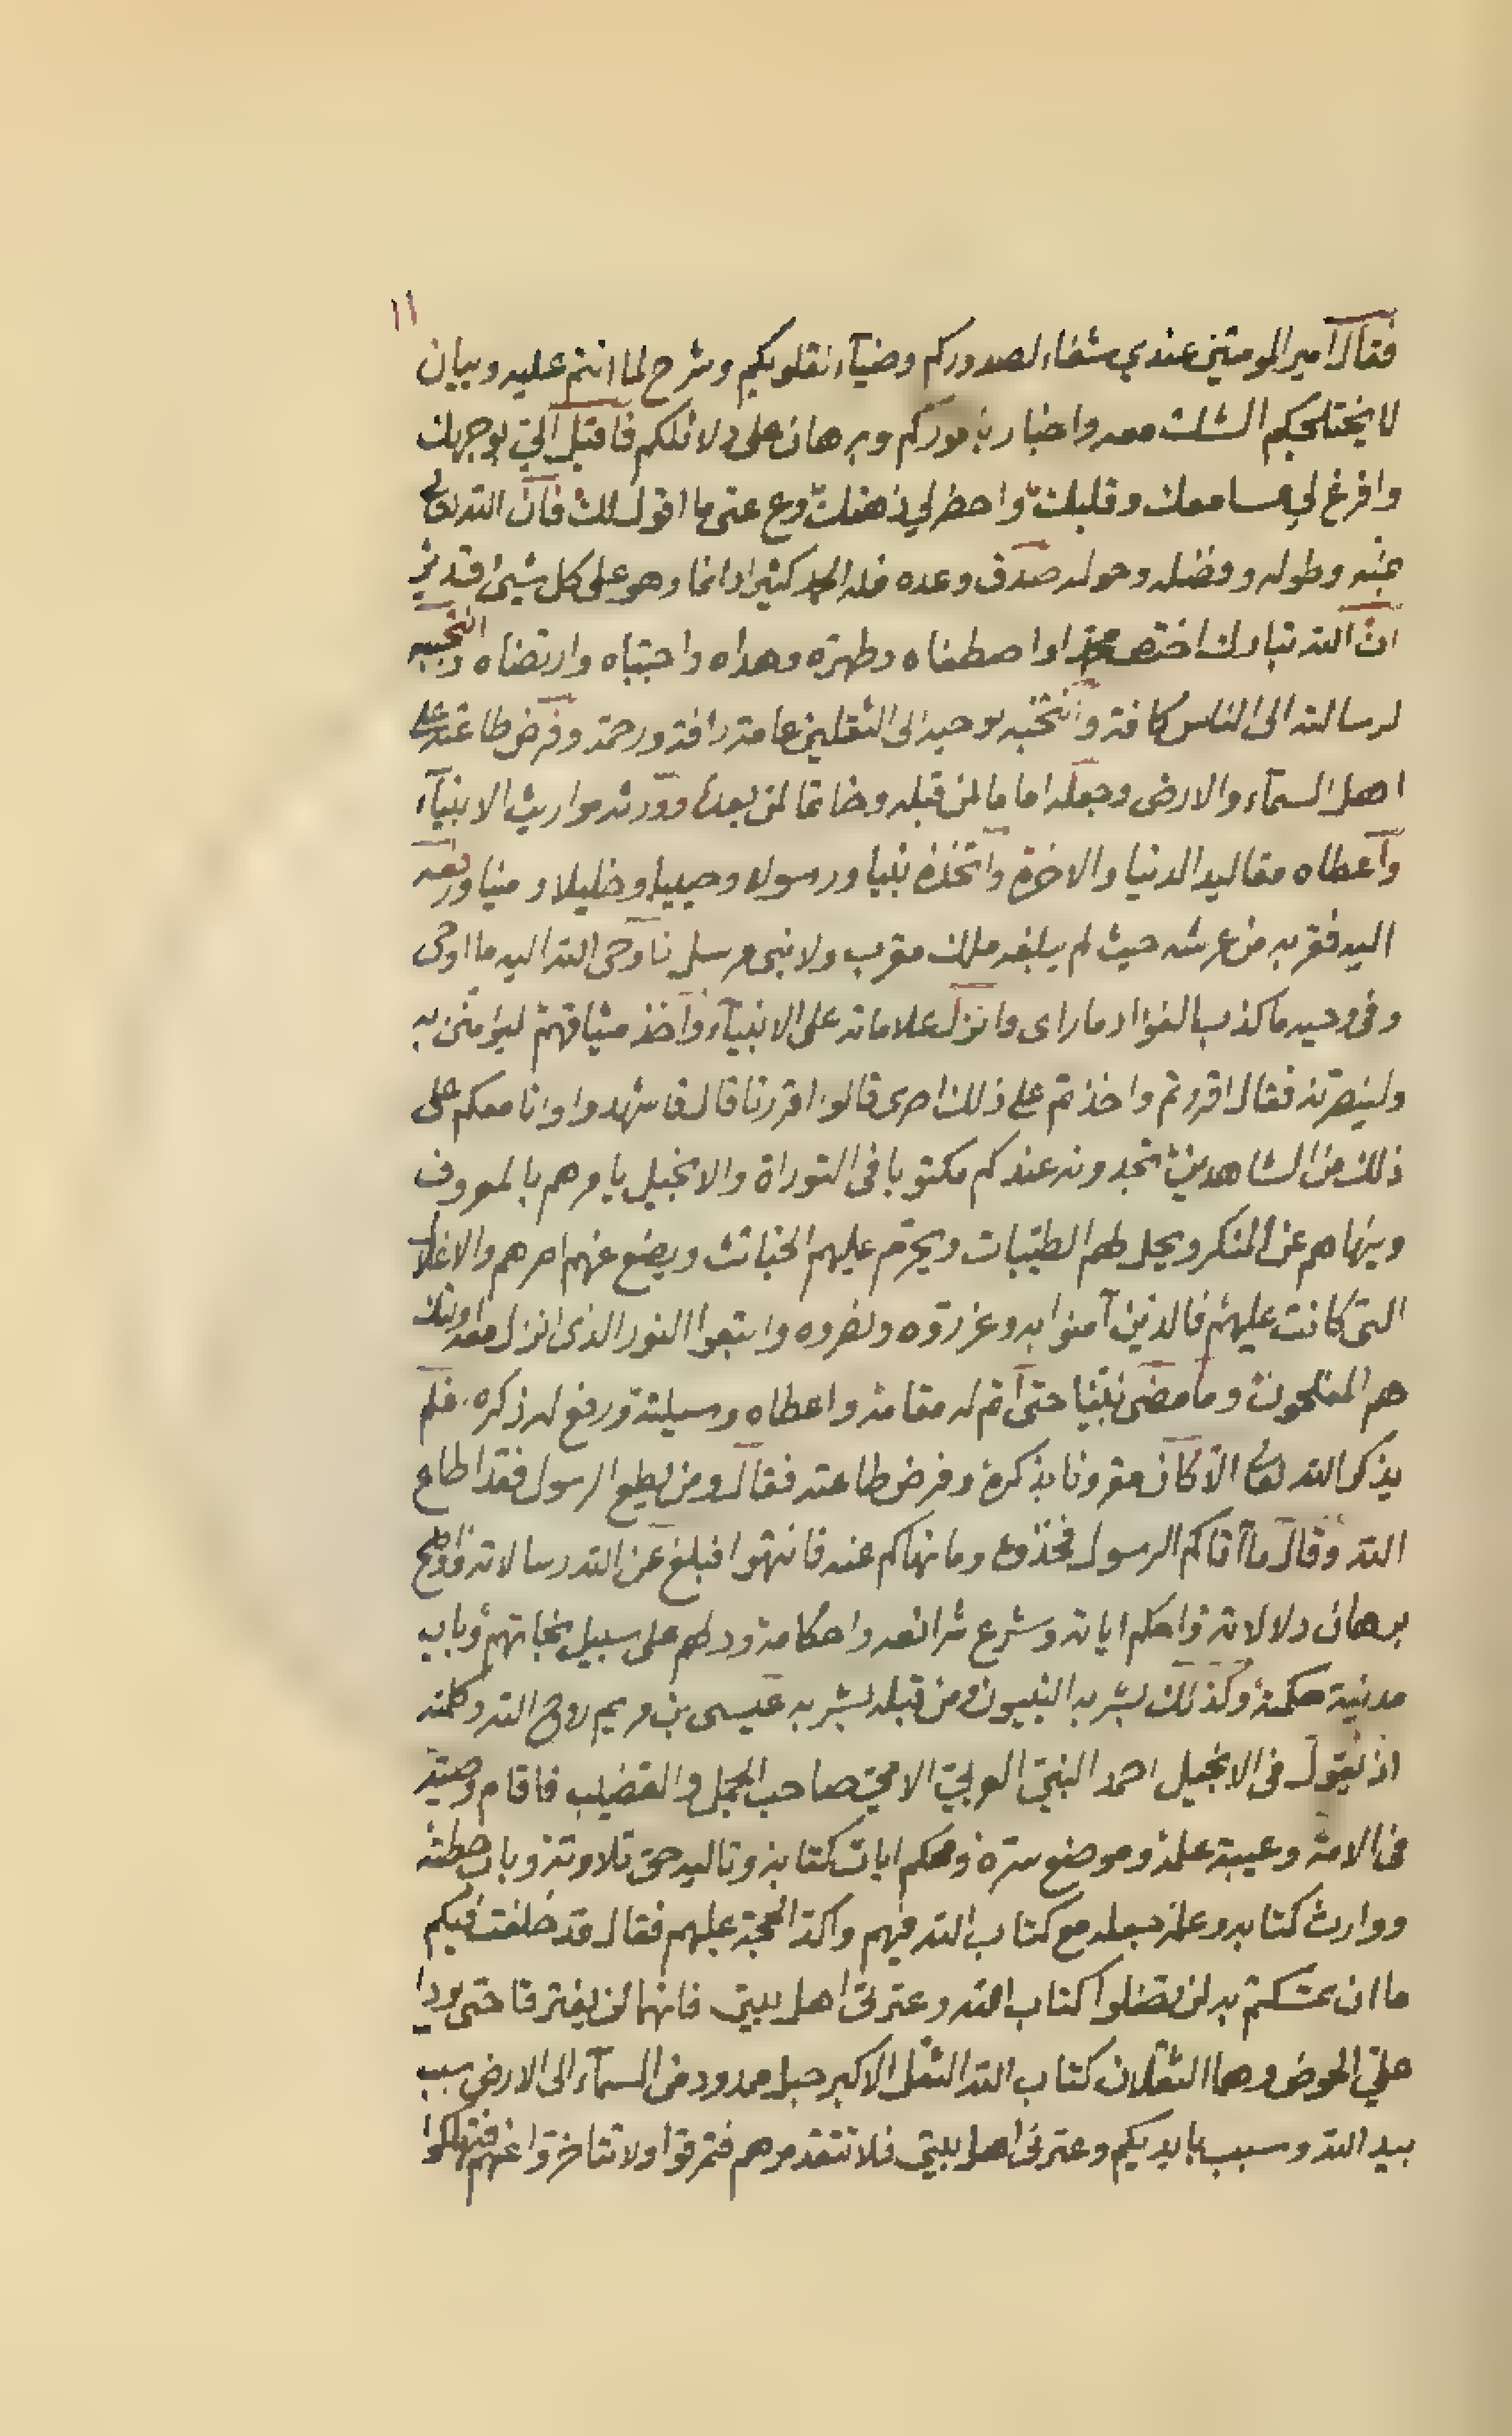 ١١
فقال امير المومنين عندي شفاء لصدوركم وضيآء لقلوبكم وشرح لما انتم عليه وبيان
لا يختلجكم الشك معه واخبار باموركم وبرهان على دلائلكم فاقبل الي بوجهك
وافرغ لي مسامعك وقلبك واحضر لي ذهنك وع عني ما اقول لك فان الله تعالى
بمنه وطوله وفضله وحوله صدق وعده فله الحمد كثيرا دائما وهو على كل شيئ قدير
ان الله تبارك اختص محمدا واصطفاه وطهره وهداه واجتباه وارتضاه وانتجبه
لرسالته الى الناس كافة وانتخبه بوحيه الى الثقلين عامة رافة ورحمة وفرض طاعته على
اهل السمآء والارض وجعله اماما لمن قبله وخاتما لمن بعده وورثه مواريث الانبيآء
واعطاه مقاليد الدنيا والاخرة واتخذه نبيا ورسولا وحبيبا وخليلا ورفعه
اليه فقربه من عرشه حيث لم يبلغه ملك مقرب ولا نبى مرسل فاوحى الله اليه ما اوحى
وفى وحيه ما كذب الفواد ما راى وانزل علاماته على الانبيآء واخذ ميثاقهم ليؤمنن به
ولينصرنه فقال اقررتم واخذتم على ذلك اصرى قالوا اقررنا قال فاشهدوا وانا معكم على
ذلك من الشاهدين تجدونه عندكم مكتوبا فى التوراة والانجيل يامرهم بالمعروف
وينهاهم عن المنكر ويحل لهم الطيبات ويحرم عليهم الخبائث ويضع عنهم اصرهم والاغلال
التى كانت عليهم فالذين آمنوا به وعزروه ونصروه واتبعوا النور الذى انزل معه اولئك
هم المفلحون وما مضى نبينا حتى اتم له مقامه واعطاه وسيلته ورفع له ذكره فلم
يذكر الله تعالى الا كان مقرونا بذكره وفرض طاعته فقال ومن يطع الرسول فقد اطاع
الله وقال ما آتاكم الرسول فخذوه وما نهاكم عنه فانتهوا فبلغ عن الله رسالاته واوضح
برهان دلالاته واحكم اياته وشرع شرائعه واحكامه ودلهم على سبيل نجاتهم وباب
مدينة حكمته وكذلك بشر به النبيون من قبله بشر به عيسى بن مريم روح الله وكلمته
اذ يقول فى الانجيل احمد النبي العربي الامي صاحب الجمل والقضيب فاقام وصيه
فى الامة وعيبة علمه وموضع سره ومحكم ايات كتابه وتاليه حق تلاوته وباب حطته
ووارث كتابه جعله مع كتاب الله فيهم واكد الحجة عليهم فقال قد خلفت فيكم
ما ان تمسكتم به لن تضلوا كتاب الله وعترتى اهل بيتى فانهما لن يفترقا حتى يردا
علي الحوض وهما الثقلان كتاب الله الثقل الاكبر حبل ممدود من السمآء الى الارض سبب
بيد الله وسبب بايديكم وعترتى اهل بيتى فلا تتقدموهم فتمرقوا ولا تتاخروا عنهم فتهلكوا